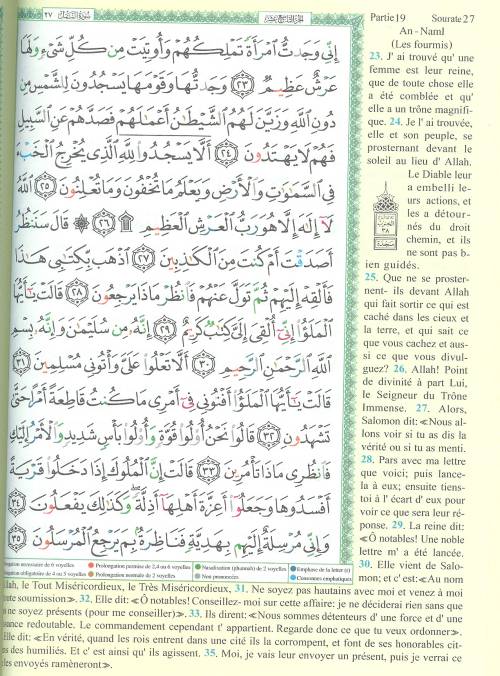 الجزء التاسع عشر
سورة النمل ٢٧
إِنِّي وَجَدتُّ ٱمْرَأَةً تَمْلِكُهُمْ وَأُوتِيَتْ مِن كُلِّ شَىْءٍ وَلَهَا
عَرْشٌ عَظِيمٌ ٢٣ وَجَدتُّهَا وَقَوْمَهَا يَسْجُدُونَ لِلشَّمْسِ مِن
دُونِ ٱللَّهِ وَزَيَّنَ لَهُمُ ٱلشَّيْطَٰنُ أَعْمَٰلَهُمْ فَصَدَّهُمْ عَنِ ٱلسَّبِيلِ
فَهُمْ لَا يَهْتَدُونَ ٢٤ أَلَّا يَسْجُدُوا۟ لِلَّهِ ٱلَّذِى يُخْرِجُ ٱلْخَبْءَ
فِى ٱلسَّمَٰوَٰتِ وَٱلْأَرْضِ وَيَعْلَمُ مَا تُخْفُونَ وَمَا تُعْلِنُونَ ٢٥
ٱللَّهُ لَآ إِلَٰهَ إِلَّا هُوَ رَبُّ ٱلْعَرْشِ ٱلْعَظِيمِ ۩ ٢٦ ۞ قَالَ سَنَنظُرُ
أَصَدَقْتَ أَمْ كُنتَ مِنَ ٱلْكَٰذِبِينَ ٢٧ ٱذْهَب بِّكِتَٰبِى هَٰذَا
فَأَلْقِهْ إِلَيْهِمْ ثُمَّ تَوَلَّ عَنْهُمْ فَٱنظُرْ مَاذَا يَرْجِعُونَ ٢٨ قَالَتْ يَٰٓأَيُّهَا
ٱلْمَلَؤُا۟ إِنِّىٓ أُلْقِىَ إِلَىَّ كِتَٰبٌ كَرِيمٌ ٢٩ إِنَّهُۥ مِن سُلَيْمَٰنَ وَإِنَّهُۥ بِسْمِ
ٱللَّهِ ٱلرَّحْمَٰنِ ٱلرَّحِيمِ ٣٠ أَلَّا تَعْلُوا۟ عَلَىَّ وَأْتُونِى مُسْلِمِينَ ٣١
قَالَتْ يَٰٓأَيُّهَا ٱلْمَلَؤُا۟ أَفْتُونِى فِىٓ أَمْرِى مَا كُنتُ قَاطِعَةً أَمْرًا حَتَّىٰ
تَشْهَدُونِ ٣٢ قَالُوا۟ نَحْنُ أُو۟لُوا۟ قُوَّةٍ وَأُو۟لُوا۟ بَأْسٍ شَدِيدٍ وَٱلْأَمْرُ إِلَيْكِ
فَٱنظُرِى مَاذَا تَأْمُرِينَ ٣٣ قَالَتْ إِنَّ ٱلْمُلُوكَ إِذَا دَخَلُوا۟ قَرْيَةً
أَفْسَدُوهَا وَجَعَلُوٓا۟ أَعِزَّةَ أَهْلِهَآ أَذِلَّةً وَكَذَٰلِكَ يَفْعَلُونَ ٣٤
وَإِنِّى مُرْسِلَةٌ إِلَيْهِم بِهَدِيَّةٍ فَنَاظِرَةٌۢ بِمَ يَرْجِعُ ٱلْمُرْسَلُونَ ٣٥
Partie19 Sourate27
An - Naml
(Les fourmis)
23. J' ai trouvé qu' une
femme est leur reine,
que de toute chose elle
a été comblée et qu'
elle a un trône magnifi-
que. 24. Je l' ai trouvée,
elle et son peuple, se
prosternant devant le
soleil au lieu d' Allah.
Le Diable leur
a embelli le-
urs actions, et
les a détour-
nés du droit
chemin, et ils
ne sont pas b-
ien guidés.
25. Que ne se proster-
nent- ils devant Allah
qui fait sortir ce qui est
caché dans les cieux et
la terre, et qui sait ce
que vous cachez et aus-
si ce que vous divul-
guez? 26. Allah! Point
de divinité à part Lui,
le Seigneur du Trône
Immense. 27. Alors,
Salomon dit: ≪Nous al-
lons voir si tu as dis la
vérité ou si tu as menti.
28. Pars avec ma lettre
que voici; puis lance-
la à eux; ensuite tiens-
toi à l' écart d' eux pour
voir ce que sera leur ré-
ponse. 29. La reine dit:
≪Ô notables! Une noble
lettre m' a été lancée.
30. Elle vient de Salo-
mon; et c' est: ≪Au nom
llah, le Tout Miséricordieux, le Très Miséricordieux, 31. Ne soyez pas hautains avec moi et venez à moi
oute soumission≫. 32. Elle dit: ≪Ô notables! Conseillez- moi sur cette affaire: je ne déciderai rien sans que
s ne soyez présents (pour me conseiller)≫. 33. Ils dirent: ≪Nous sommes détenteurs d' une force et d' une
sance redoutable. Le commandement cependant t' appartient. Regarde donc ce que tu veux ordonner≫.
Elle dit: ≪En vérité, quand les rois entrent dans une cité ils la corrompent, et font de ses honorables cit-
ns des humiliés. Et c' est ainsi qu' ils agissent. 35. Moi, je vais leur envoyer un présent, puis je verrai ce
les envoyés ramèneront≫.
Prolongation permise de 2,4 ou 6 voyelles
Nasalisation (ghunnah) de 2 voyelles
Emphase de la lettre (r)
Prolongation normale de 2 voyelles
Non prononcées
Consonnes emphatiques